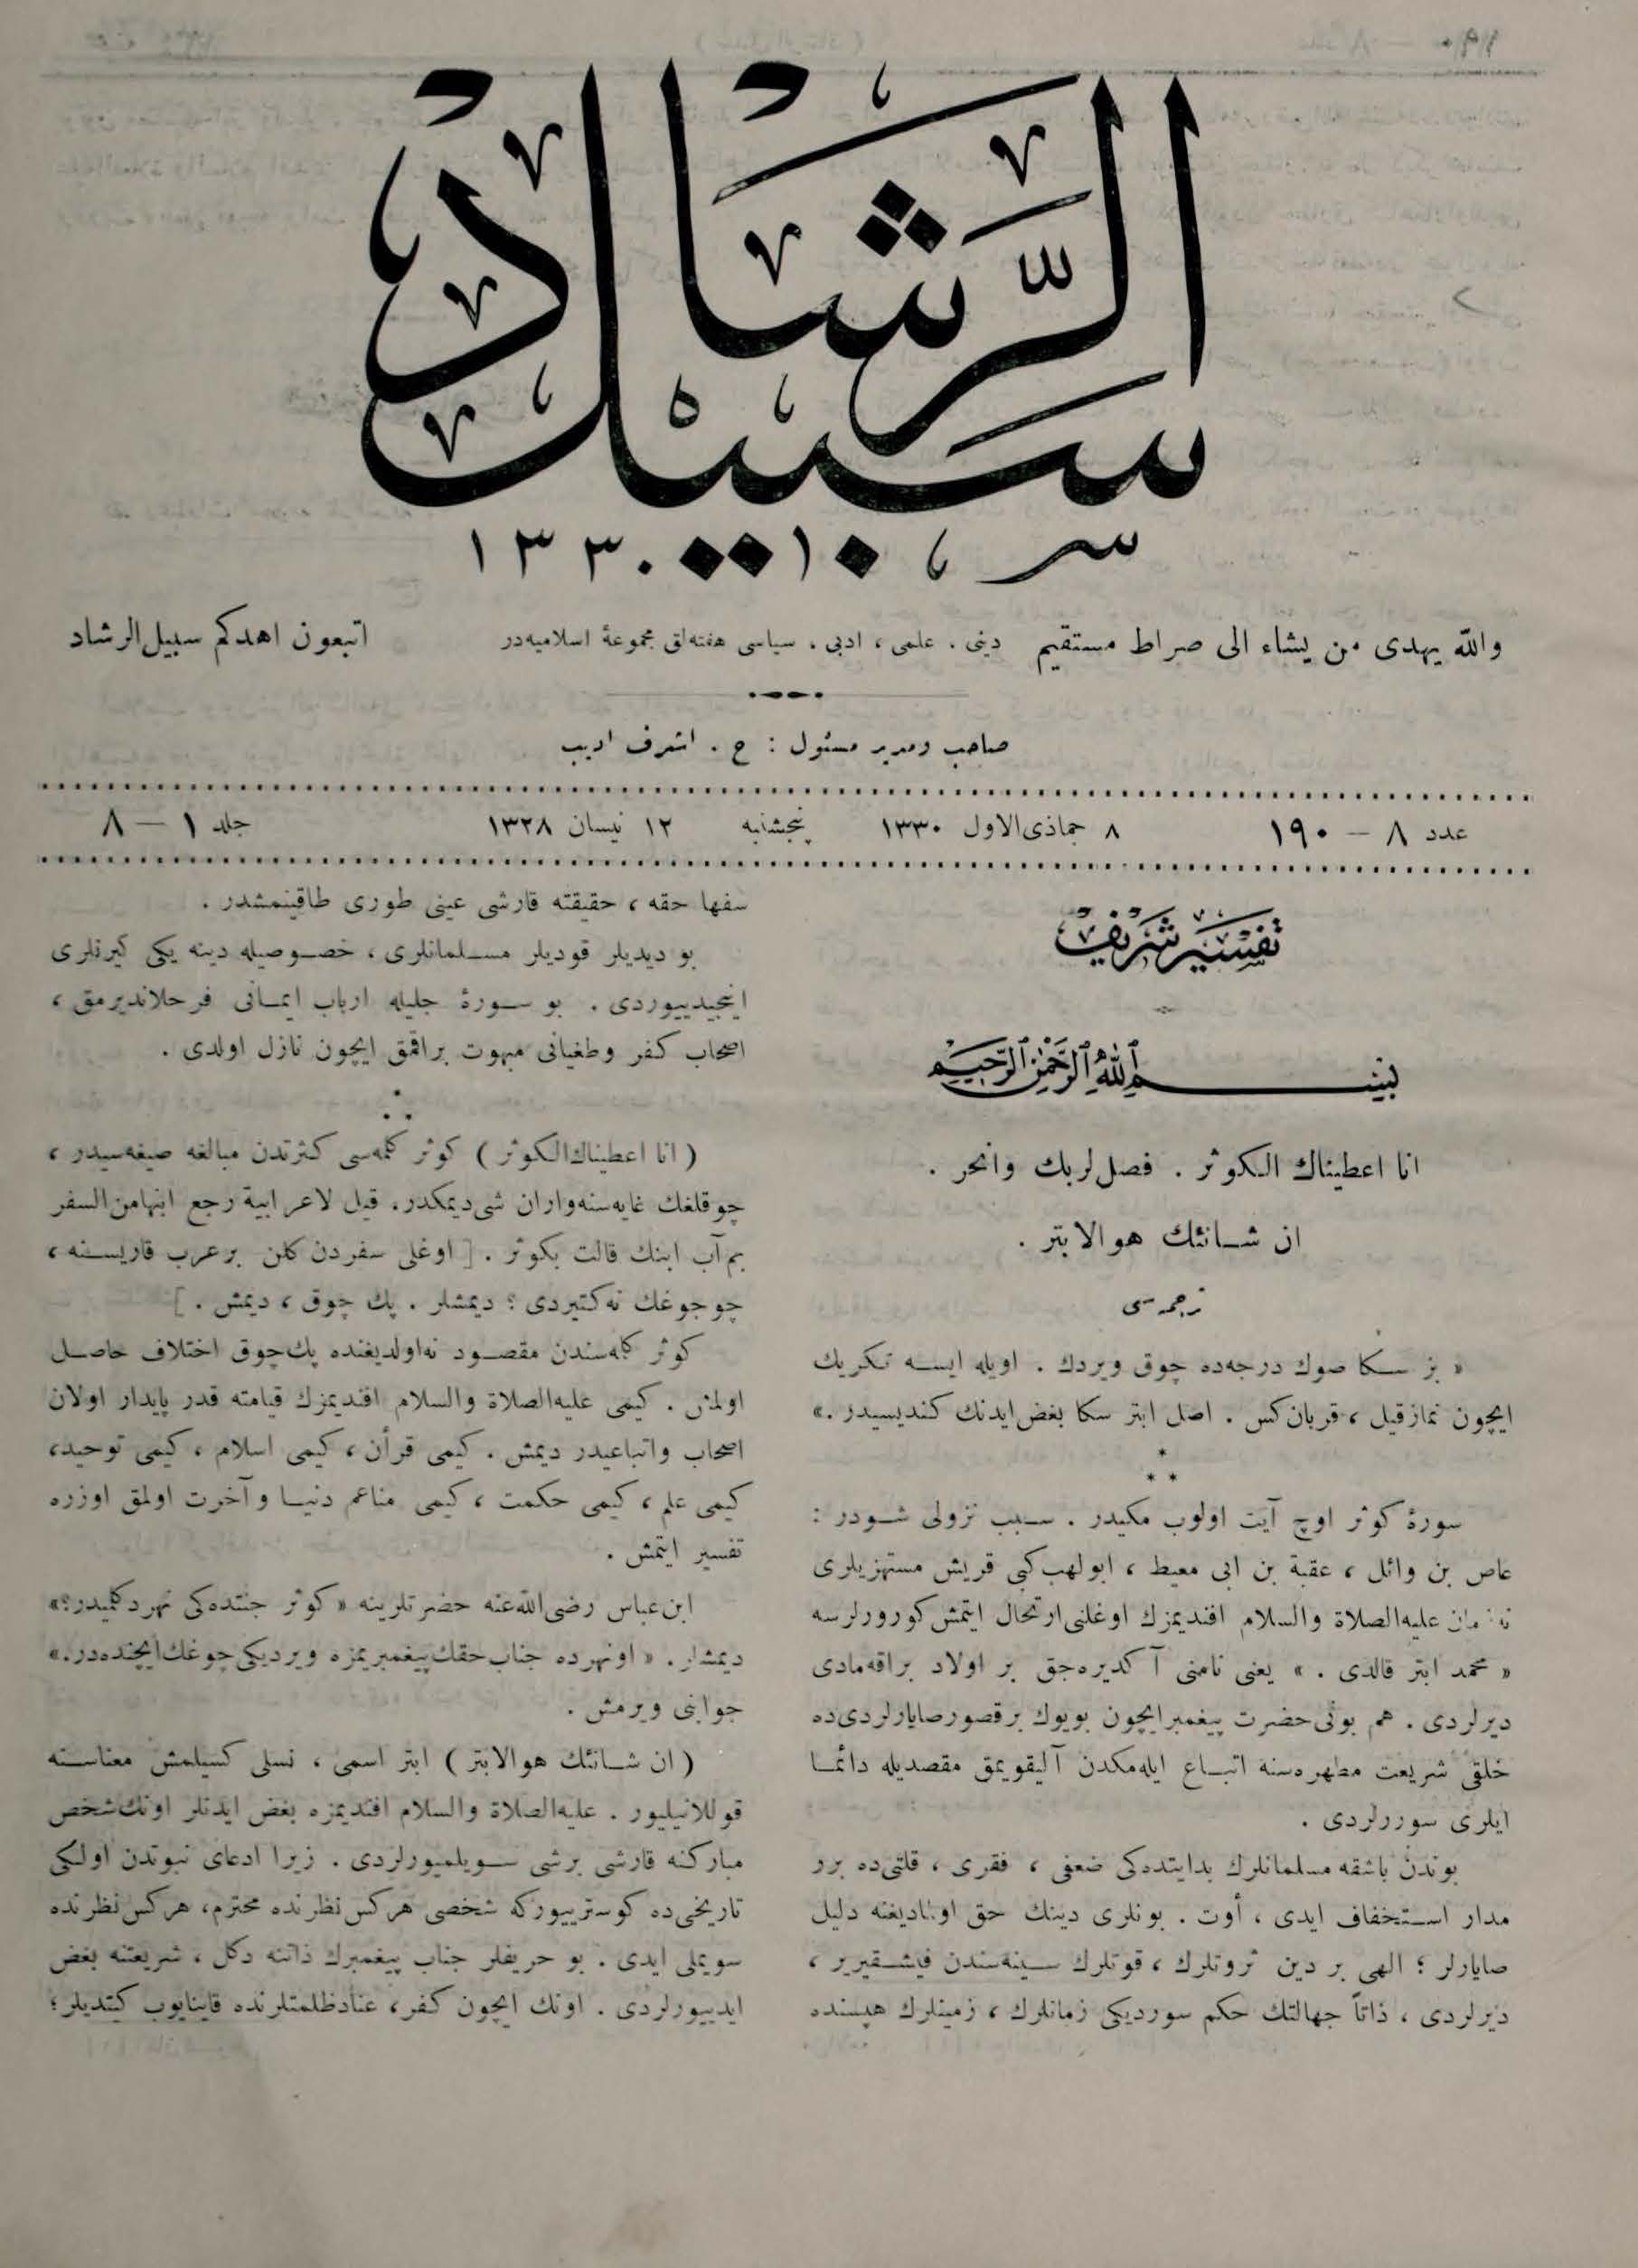 سبيل الرشاد
١٣٣٠
والله يهدى من يشاء الى صراط مستقيم
دينى ، علمى ، ادبى ، سياسى هفته‌لق مجموعهٔ اسلاميه‌در
اتبعون اهدكم سبيل الرشاد
صاحب ومدير مسئول : ح . اشرف اديب
عدد ٨ — ١٩٠
٨ جماذى الاول ١٣٣٠
پنجشنبه
١٢ نيسان ١٣٢٨
جلد ١ — ٨
تفسير شريف
بسم الله الرحمن الرحيم
انا اعطيناك الكوثر . فصل لربك وانحر .
ان شانئك هو الابتر .
ترجمه‌سى
« بز سكا صوك درجه‌ده چوق ويردك . اويله ايسه تكريك
ايچون نماز قيل ، قربان كس . اصل ابتر سكا بغض ايدنك كنديسيدر .»
* * *
سورهٔ كوثر اوچ آيت اولوب مكيدر . سبب نزولى شودر :
عاص بن وائل ، عقبة بن ابى معيط ، ابولهب كبى قريش مستهزيلرى
عليه الصلاة والسلام افنديمزك اوغلنى ارتحال ايتمش كورورلرسه
« محمد ابتر قالدى . » يعنى نامنى آكديره‌جق بر اولاد براقه‌مادى
ديرلردى . هم بونى حضرت پيغمبر ايچون بويوك بر قصور صايارلردى ده
خلقى شريعت مطهره‌سنه اتباع ايله‌مكدن آليقويمق مقصديله دائما
ايلرى سوررلردى .
بوندن باشقه مسلمانلرك بدايتده‌كى ضعفى ، فقرى ، قلتى ده برر
مدار استخفاف ايدى ، أوت . بونلرى دينك حق اولماديغنه دليل
صايارلر ؛ الهى بر دين ثروتلرك ، قوتلرك سينه‌سندن فيشقيرير ،
ديرلردى ، ذاتاً جهالتك حكم سورديكى زمانلرك ، زمينلرك هپسنده
سفها حقه ، حقيقته قارشى عينى طورى طاقينمشدر .
بو ديديلر قوديلر مسلمانلرى ، خصوصيله دينه يكى كيرنلرى
اينجيدييوردى . بو سورهٔ جليله ارباب ايمانى فرحلانديرمق ،
اصحاب كفر وطغيانى مبهوت براقمق ايچون نازل اولدى .
( انا اعطيناك الكوثر ) كوثر كلمه‌سى كثرتدن مبالغه صيغه‌سيدر ،
چوقلغك غايه‌سنه واران شى ديمكدر . قيل لاعرابية رجع ابنها من السفر
بم آب ابنك قالت بكوثر . [ اوغلى سفردن كلن بر عرب قاريسنه ،
چوجوغك نه كتيردى ؟ ديمشلر . پك چوق ، ديمش . ]
كوثر كله‌سندن مقصود نه اولديغنده پك چوق اختلاف حاصل
اولمش . كيمى عليه الصلاة والسلام افنديمزك قيامته قدر پايدار اولان
اصحاب واتباعيدر ديمش . كيمى قرأن ، كيمى اسلام ، كيمى توحيد،
كيمى علم ، كيمى حكمت ، كيمى مناعم دنيا و آخرت اولمق اوزره
تفسير ايتمش .
ابن عباس رضى الله عنه حضرتلرينه « كوثر جنتده‌كى نهر دكلميدر؟»
ديمشلر . « او نهرده جناب حقك پيغمبريمزه ويرديكى چوغك ايچنده‌در .»
جوابنى ويرمش .
( ان شانئك هو الابتر ) ابتر اسمى ، نسلى كسيلمش معناسنه
قوللانيليور . عليه الصلاة والسلام افنديمزه بغض ايدنلر اونك شخص
مباركنه قارشى برشى سويلميورلردى . زيرا ادعاى نبوتدن اولكى
تاريخى ده كوستريوركه شخصى هركس نظرنده محترم، هركس نظرنده
سويملى ايدى . بو حريفلر جناب پيغمبرك ذاتنه دكل ، شريعتنه بغض
ايدييورلردى . اونك ايچون كفر ، عناد ظلمتلرنده قاينايوب كيتديلر ؛